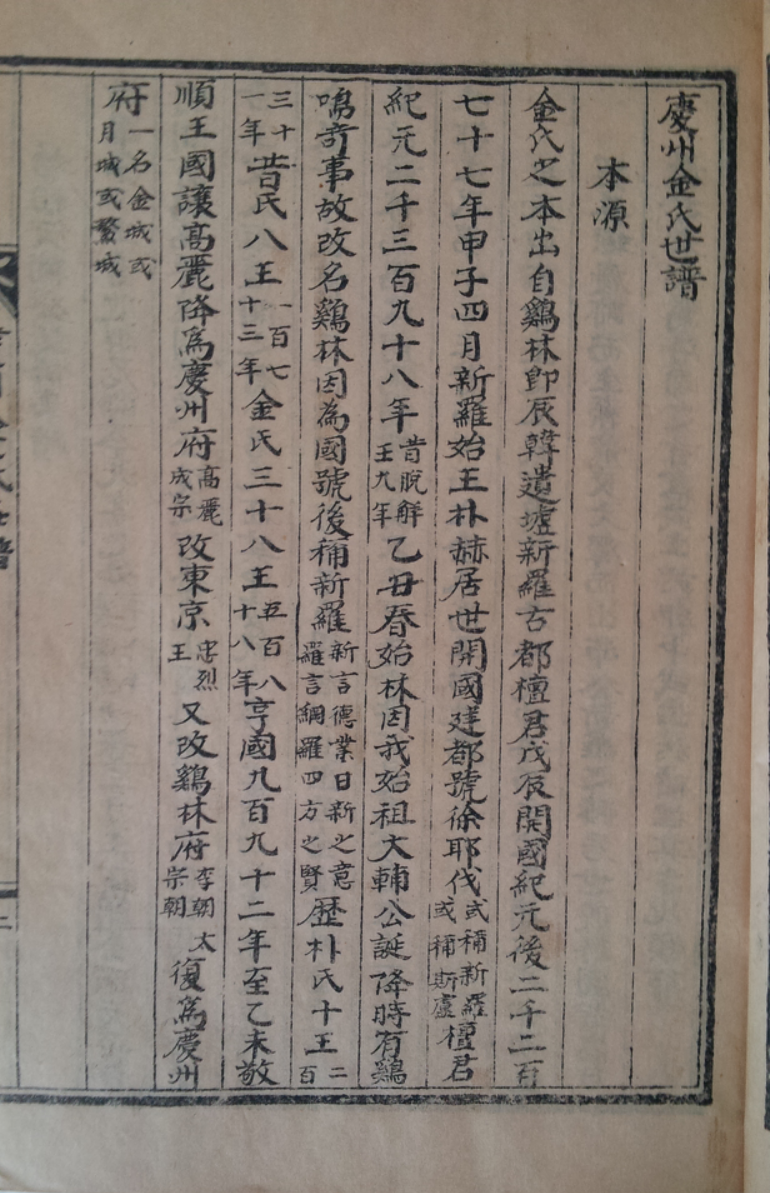 慶州金氏世譜
本源
金氏之本出自鷄林卽辰韓遺墟新羅古都檀君戊辰開國紀元後二千二百
七十七年甲子四月新羅始王朴赫居世開國建都號徐耶伐或稱新羅或稱斯盧檀君
紀元二千三百九十八年昔脫解王九年乙丑春始林因我始祖大輔公誕降時有鷄
鳴奇事故改名鷄林因為國號後稱新羅新言德業日新之意羅言網羅四方之賢歷朴氏十王二百
三十一年昔氏八王一百七十三年金氏三十八王五百八十八年享國九百九十二年至乙未敬
順王國讓高麗降爲慶州府高麗成宗改東京忠烈王又改鷄林府李朝太宗朝復爲慶州
府一名金城或月城或鰲城